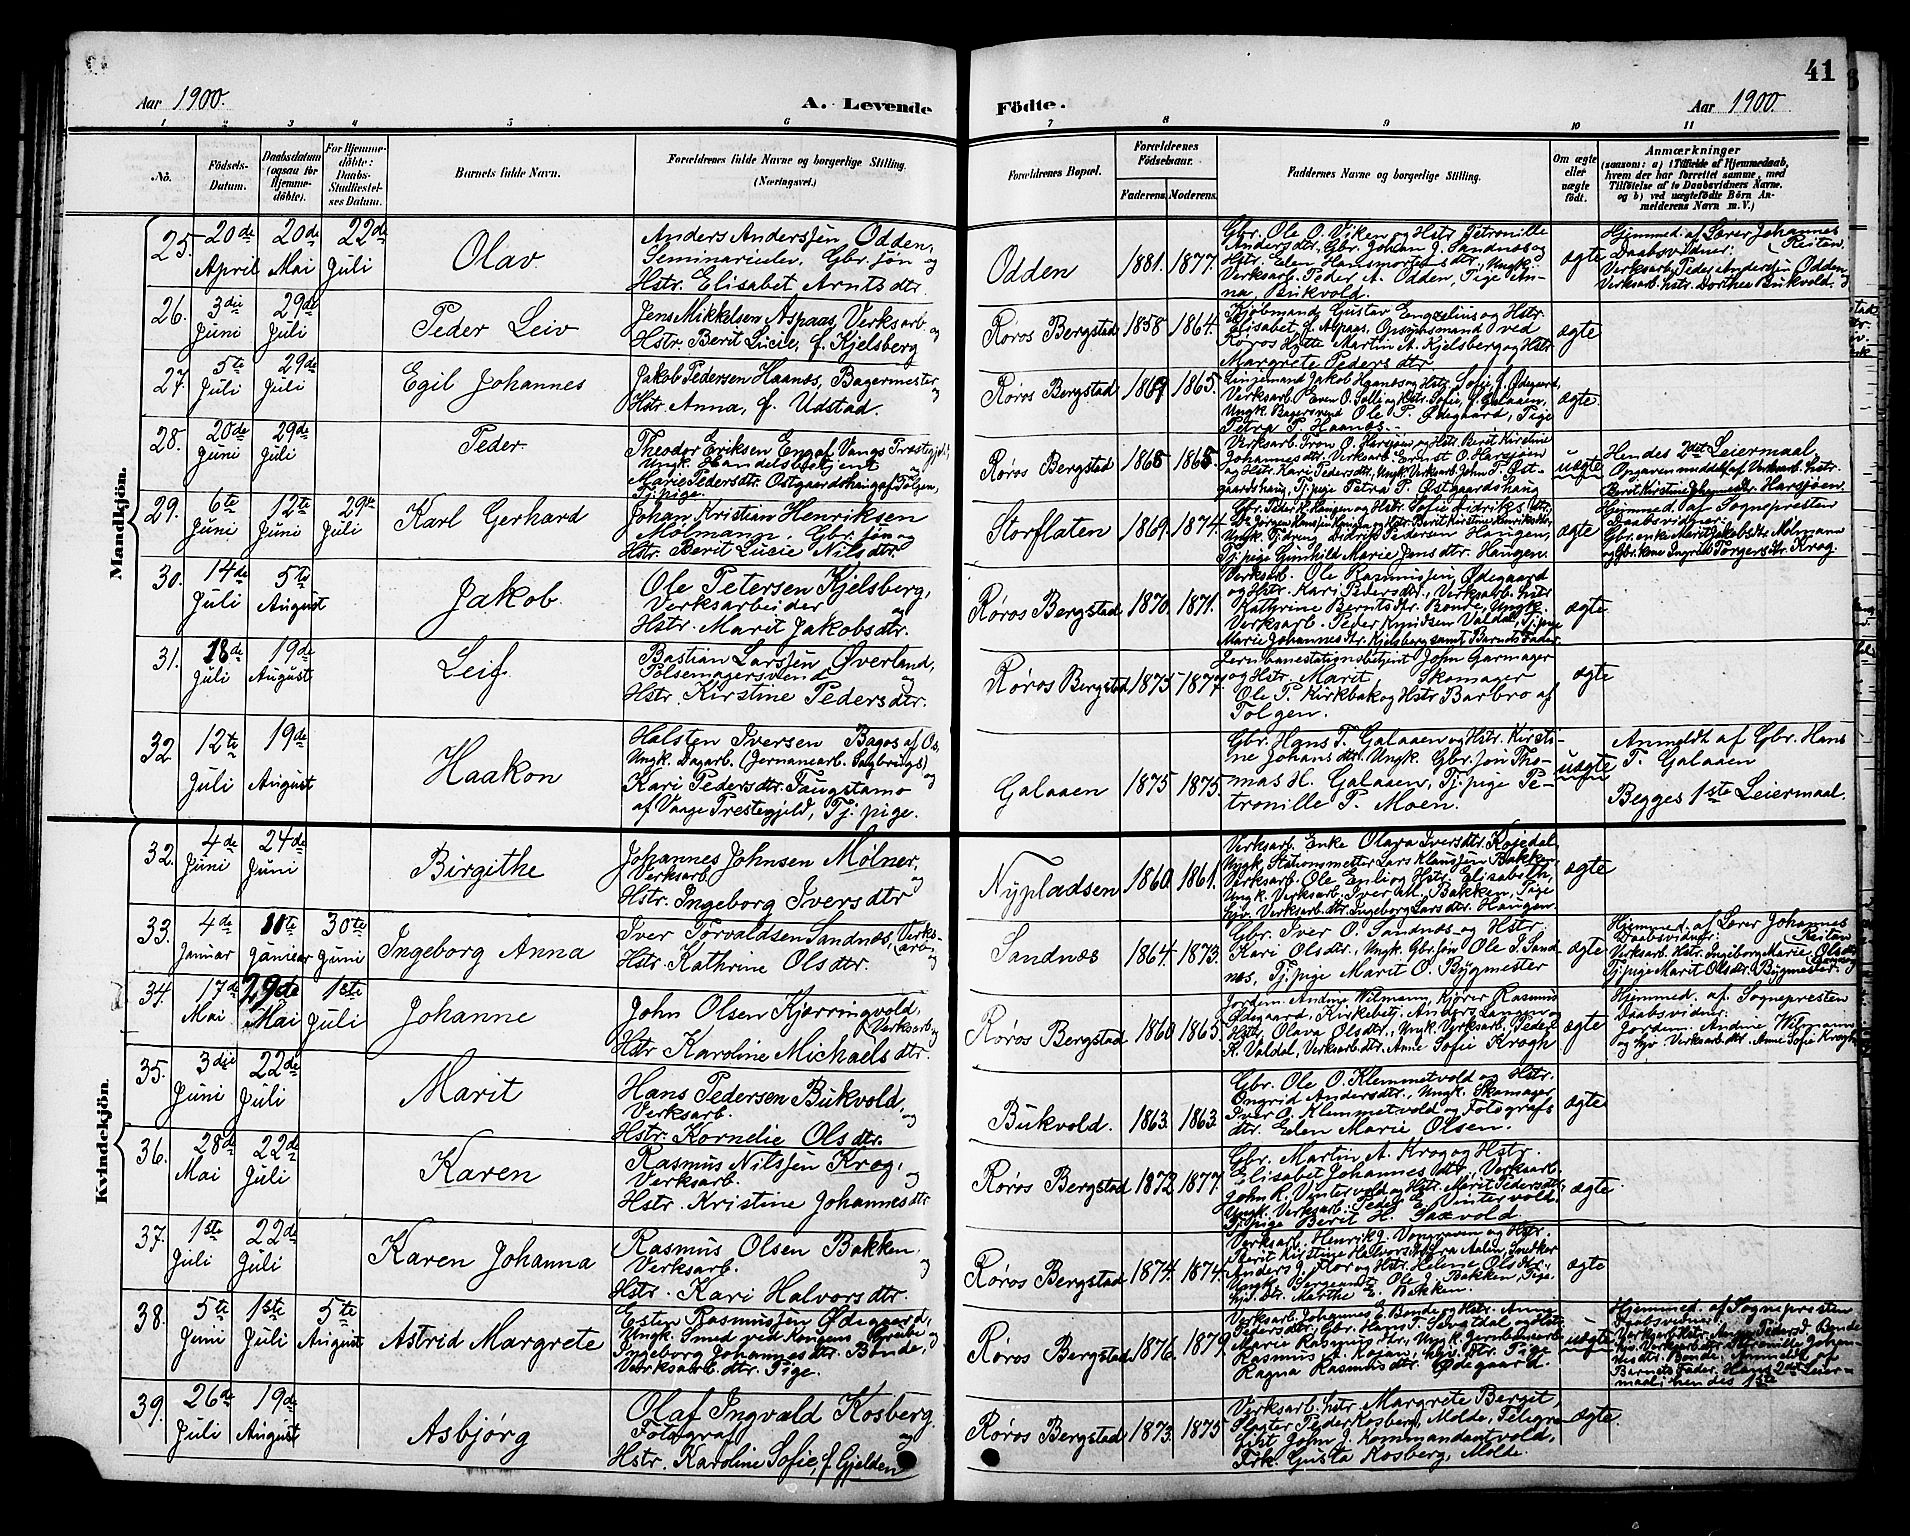 41
Aar 1900.
A. Levende Födte.
Aar 1900.
1 2 3 4 5 6 7 8 9 10 11
No.
Födsels-Datum.
Daabsdatum (ogsaa for Hjemme-döbte).
For Hjemme-döbte: Daabs-Stadfæstel-ses Datum.
Barnets fulde Navn.
Forældrenes fulde Navne og borgerlige Stilling. (Næringsvei.)
Forældrenes Bopæl.
Forældrenes Födselsaar.
Faderens. Moderens.
Faddernes Navne og borgerlige Stilling.
Om ægte eller uægte födt.
Anmærkninger
(saasom: a) i Tilfælde af Hjemmedaab, hvem der har forrettet samme, med Tilföielse af to Daabsvidners Navne. og b) ved uægtefödte Börn An-melderens Navn m. V.)
Mandkjön.
25. 20de April 20de Mai 22de Juli
Olav
Anders Andersjen Odden,
Seminarielev, Gbr. søn og
Hstr. Elisabet Arntsdtr.
Odden 1881. 1877.
Gbr. Ole O. Viken og Hstr. Petronille
Andersdtr., Gbr. Johan J. Sandnæs og
Hstr. Elen Hansmortensdtr., Ungk.
Verksarb. Peder A. Odden, Pige An-
na Bukvold.
ægte
Hjemmed. af Lærer Johannes Reiten
Daabsvidner:
Verksarb. Peder Andersjen Odden og
Verksarb. hstr. Dorthea Bukvold.
26. 3die Juni 29de Juli
Peder Leiv
Jens Mikkelsen Aspaas, Verksarb. og
Hstr. Berit Lucie, f. Kjelsberg
Røros Bergstad 1858 1864.
Kjøbmand Gustav Engzelius og Hstr.
Elisabet f. Aspaas, Opsynsmand ved
Røros Hytte Martin A. Kjelsberg og Hstr.
Margrete Pedersdtr.
ægte
27. 5te Juli 29de Juli
Egil Johannes
Jakob Pedersen Haanæs, Bagermester og
Hstr. Anna, f. Udstad.
Røros Bergstad 1869 1865.
Linjemand Jakob Haanæs og Hstr. Sofie, f. Ødegaard,
Verksarb. Even O. Solli og Hstr. Sofie, f. Galaaen,
Ungk. Bagersvend Ole P. Ødegaard, Pige
Petra P. Haanæs.
ægte.
28. 20de Juni 29de Juli
Peder.
Theodor Eriksen Eng af Vangs Præstegjeld,
Ungk. Handelsbetjent og
Marie Pedersdtr. Østgaardshaug af Tolgen,
Tj. pige.
Røros Bergstad 1865 1865.
Verksarb. Tron O. Harsjøen og Hstr. Berit Kirstine
Johannesdtr., Verksarb. Ernst O. Harsjøen
og Hstr. Kari Pedersdtr., Ungk. Verksarb. John P. Øst-
gaardshaug, Tj. pige Petra P. Østgaardshaug
uægte
Hendes 2det Leiermaal.
Opgaven meddelt af Verksarb. hstr.
Berit Kirstine Johannesdtr. Harsjøen.
29. 6te Juni 12te Juni 29de Juli
Karl Gerhard
Johan Kristian Henriksen
Mølmann, Gbr. søn og
Hstr. Berit Lucie Nilsdtr.
Storflaten 1869. 1874.
Gbr. Peder K. Haugen og Hstr. Sofie Didriksdtr.
Do Jørgen Hansjen Haugen og Hstr. Berit Kirstine Henriksdtr.,
Ungk. Tjdreng Didrik Pedersen Haugen,
Tj. pige Gunhild Marie Jensdtr. Haugen.
ægte
Hjemmed. af Sognepresten
Daabsvidner:
Gbr. enke Marit Jakobsdtr. Mølmann
og Gbr. kone Ingrid Torgersdtr. Krog.
30. 14de Juli 5te August
Jakob.
Ole Petersen Kjelsberg,
Verksarbeider og
Hstr. Marit Jakobsdtr.
Røros Bergstad 1870. 1871.
Verksarb. Ole Rasmussen Ødegaard
og Hstr. Kari Pedersdtr., Verksarb. hstr.
Kathrine Berntsdtr. Bonde, Ungk.
Verksarb. Peder Knudsen Valdal, Tj. pige
Marie Johannesdtr. Kjelsberg samt Barnets Fader.
ægte
31. 18de Juli 19de August
Leif.
Bastian Larsjen Øverland,
Pølsemagersvend og
Hstr. Kirstine Pedersdtr.
Røros Bergstad 1875 1877.
Jernbanestationsbetjent John Garmager
og Hstr. Marit, Skomager
Ole P. Kirkbak og Hstr. Barbro af
Tolgen.
ægte
32 12te Juli 19de August
Haakon
Halsten Iversen Bagos af Os,
Ungk. Dagarb. (Jernanearb. Sagbrugs) og
Kari Pedersdtr. Taugstamo
af Vaage Prestegjeld, Tj. pige.
Galaaen 1875 1875.
Gbr. Hans T. Galaaen og Hstr. Kirsti-
ne Johansdtr., Ungk. Gbr. søn Tho-
mas H. Galaaen, Tj. pige Pe-
tronille P. Moen.
uægte
Anmeldt af Gbr. Hans
T. Galaaen
Begges 1ste Leiermaal.
Kvindekjön.
32. 4de Juni 24de Juni
Birgithe
Johannes Johnsen Mølner,
Verksarb. og
Hstr. Ingeborg Iversdtr
Nypladsen 1860 1861.
Verksarb. Enke Olava Iversdtr. Kojedal,
Ungk. Stationsmester Lars Klausjen Bakken,
Verksarb. Ole Enli og Hstr. Elisabeth,
Ungk. Verksarb. Iver M. Bakken, Pige
hjv. Verksarb. dtr. Ingeborg Larsdtr. Haugen.
ægte
33. 4de Januar 11te Januar 30te Juni
Ingeborg Anna
Iver Torvaldsen Sandnæs, Verks-
arb. og
Hstr. Kathrine Olsdtr.
Sandnæs 1864. 1873.
Gbr. Iver O. Sandnæs og Hstr.
Kari Olsdtr., Ungk. Gbr. søn Ole I. Sand-
næs, Tj. pige Marit O. Bygmester
ægte
Hjemmed. af Lærer Johannes Reiten
Daabsvidner:
Verksarb. Hstr. Ingeborg Marie Olsdtr.
Tj. pige Marit Olsdtr. Bygmester
34. 17de Mai 29de Mai 1ste Juli
Johanne
John Olsen Kjørringvold,
Verksarb. og
Hstr Karoline Michaelsdtr.
Røros Bergstad 1860 1865.
Jordem. Andine Wilmann, Kjører Rasmus
Ødegaard, Kirkebetj. Anders Langen og
Hstr. Olava Olsdtr., Ungk. Verksarb. Peder
K. Valdal, Verksarb. dtr. Anne Sofie Krogh
ægte
Hjemmed. af Sognepresten
Daabsvidner:
Jordem. Andine Wilmann
og hjv. Verksarb. dtr. Anne Sofie Krogh
35. 3die Juni 22de Juli
Marit
Hans Pedersen Bukvold,
Verksarb. og
Hstr. Kornelie Olsdtr.
Bukvold. 1863. 1863.
Gbr. Ole O. Klemmetvold og Hstr.
Ingrid Andersdtr., Ungk. Skomager
Iver O. Klemmetvold og Fotografs
dtr. Elen Marie Olsen.
ægte
36. 28de Mai 22de Juli
Karen
Rasmus Nilsjen Krog,
Verksarb. og
Hstr. Kristine Johannesdtr
Røros Bergstad 1872 1877
Gbr. Martin A. Krog og Hstr.
Elisabet Johannesdtr., Verksarb.
John R. Vintervold og Hstr. Marit Pedersdtr.,
Ungk. Verksarb. Peder E. Vintervold,
Tj. pige Berit H. Saxvold.
ægte
37. 1ste Juli 22de Juli
Karen Johanna
Rasmus Olsen Bakken,
Verksarb. og
Hstr. Kari Halvorsdtr.
Røros Bergstad 1874. 1874.
Verksarb. Henrik J. Vongraven og Hstr.
Berit Kirstine Halvorsdtr. fra Aalen, Snedker
Anders J. Flor og Hstr. Helene Olsdtr.,
Ungk. Sergeant Ole J. Bakken, Pige
hjv. dtr. Marthe E. Bakken.
ægte
38. 5te Juni 1ste Juli 5te August
Astrid Margrete
Esten Rasmusjen Ødegaard,
Ungk. Smed ved Kongens Grube og
Ingeborg Johannesdtr. Bonde,
Verksarb. dtr. Pige.
Røros Bergstad 1876. 1879.
Verksarb. Johannes J. Bonde og Hstr. Anne
Pedersdtr., Gbr. Hans T. Langtdal og Hstr.
Marie Rasmusdtr., Ungk. Jernbanearb.
Rasmus A. Kojan, hjv. dtr. Pige
Ragna Rasmusdtr. Ødegaard.
uægte
Hjemmed. af Sognepresten
Daabsvidner:
Verksarb. Hstr. Anne Pedersd. Bonde
hjv. Verksarb. dtr. Petronille Johan-
nesdtr. Bonde. Anmeldt af
Barnets Fader. Hans 2det Leier-
maal, hendes 1ste
39. 26de Juli 19de August
Asbjørg
Olaf Ingvald Kosberg,
Fotograf og
Hstr. Karoline Sofie, f. Gjelden
Røros Bergstad 1873. 1875
Verksarb. hstr. Margrete Berget,
Slagter Peder Kosberg, Molde, Telegra-
fist John J. Kommandantvold,
Frk. Gusta Kosberg, Molde.
ægte